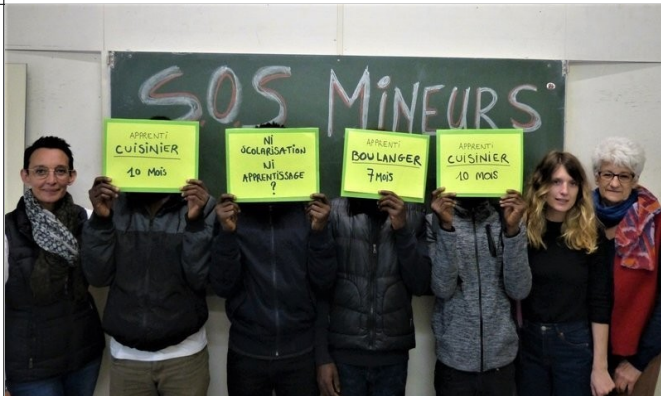 SOS MiNEURS
APPRENTi
CUiSiNiER
10 MOiS
Ni
SCOLARiSATiON
Ni
APPRENTiSSAGE
?
APPRENTi
BOULANGER
7 MOiS
APPRENTi
CUiSiNiER
10 MOiS